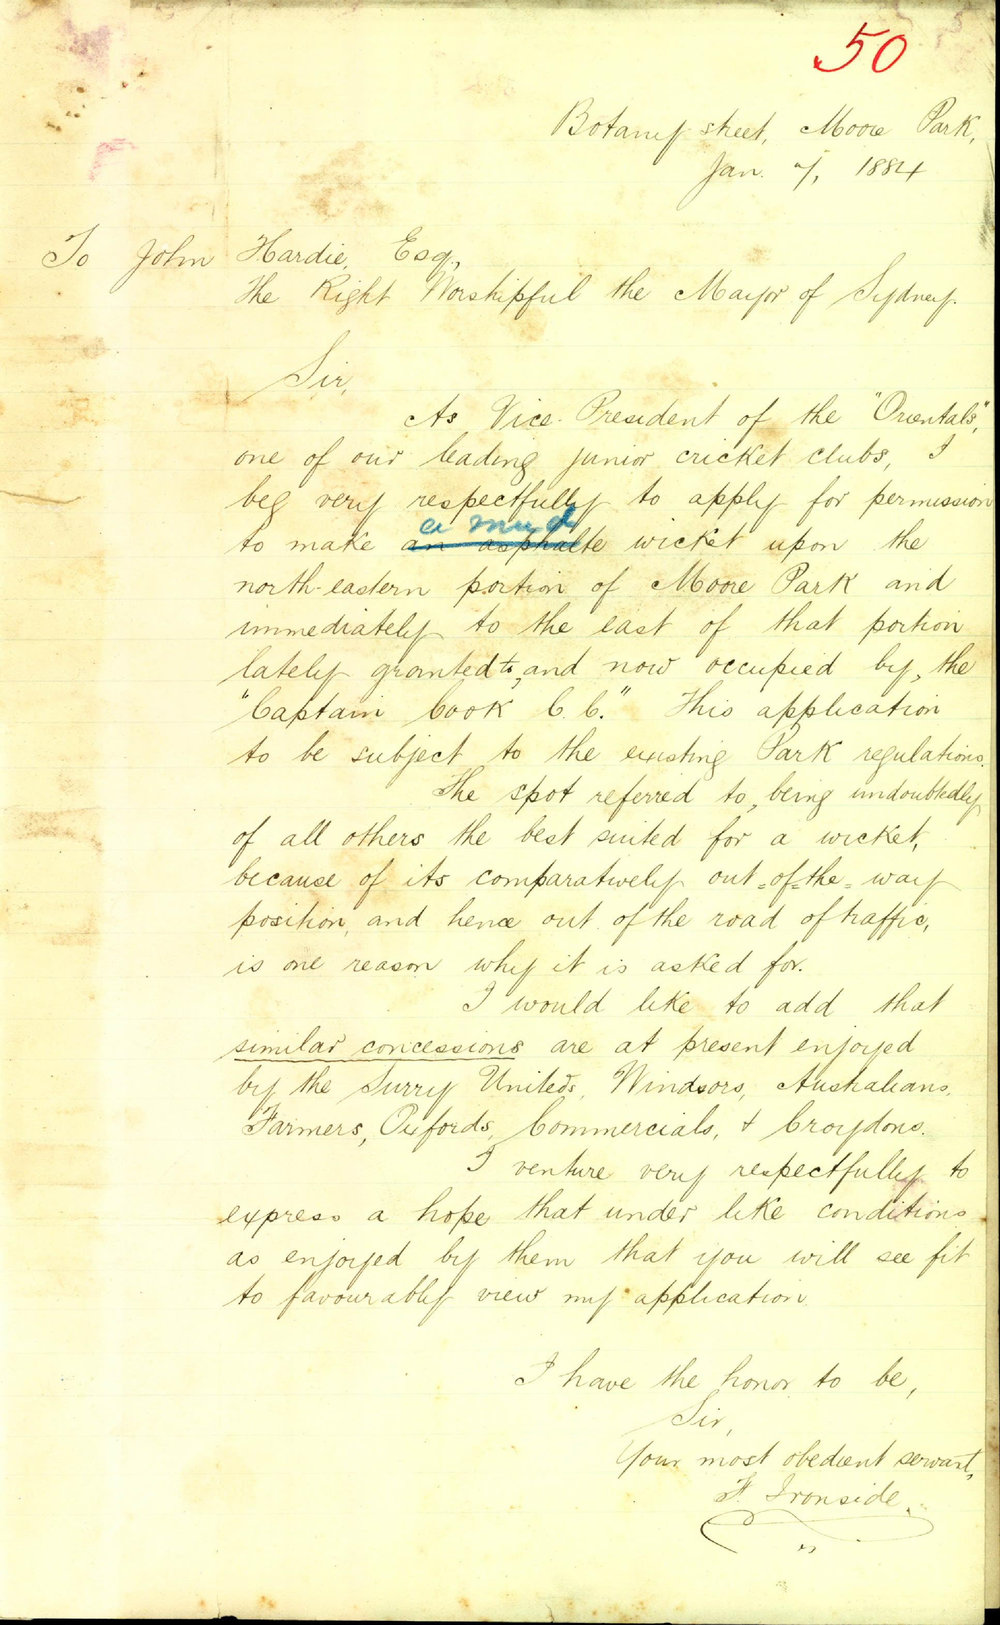 50
Botany street, Moore Park,
Jan. 7, 1884
To John Hardie, Esq.,
The Right Worshipful the Mayor of Sydney.
Sir,
As Vice-President of the "Orientals",
one of our leading junior cricket clubs, I
beg very respectfully to apply for permission
a mud
to make an asphalte wicket upon the
north-eastern portion of Moore Park and
immediately to the east of that portion
lately granted to, and now occupied by, the
"Captain Cook C.C." This application
to be subject to the existing Park regulations.
The spot referred to, being undoubtedly
of all others the best suited for a wicket,
because of its comparatively out-of-the-way
position, and hence out of the road of traffic,
is one reason why it is asked for.
I would like to add that
similar concessions are at present enjoyed
by the Surry Uniteds, Windsors, Australians,
Farmers, Oxfords, Commercials, & Croydons.
I venture very respectfully to
express a hope that under like conditions
as enjoyed by them that you will see fit
to favourably view my application.
I have the honor to be,
Sir,
Your most obedient servant,
F. Ironside.